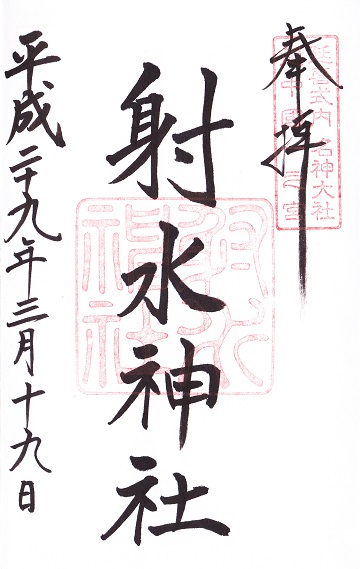 奉拝
延喜式内名神大社
射水神社
射水神社
平成二十九年三月十九日